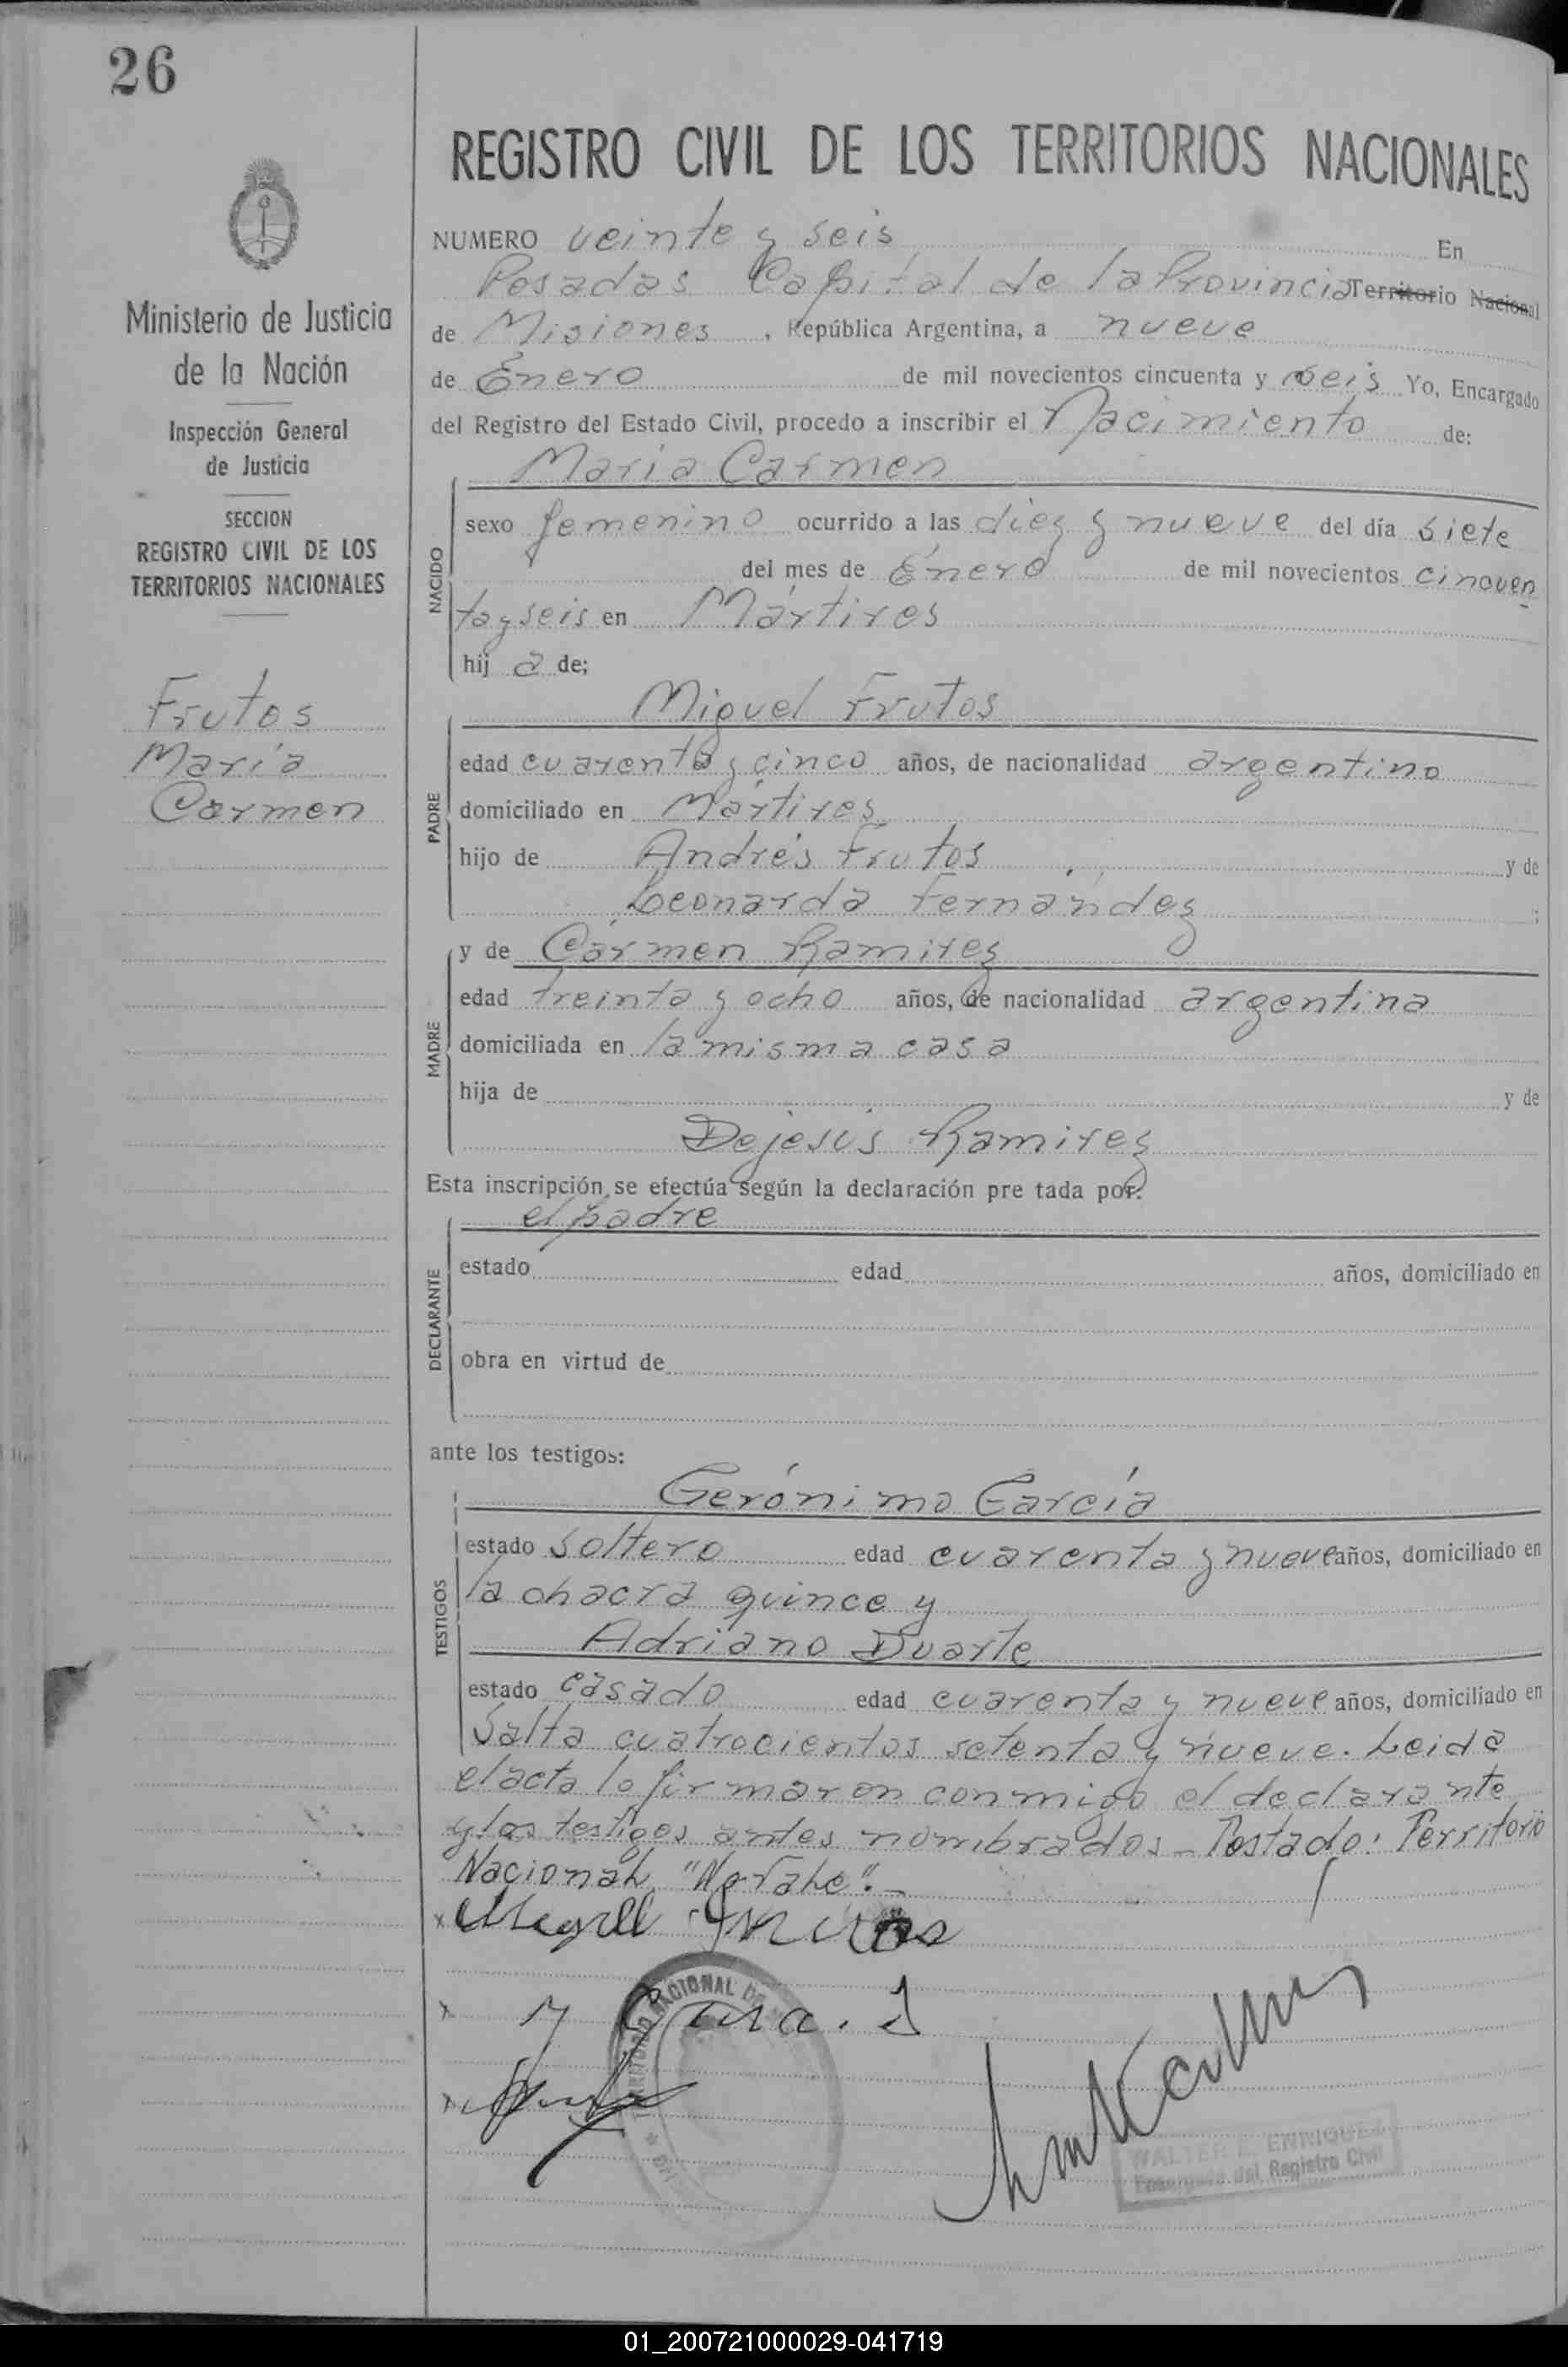 26
Ministerio de Justicia
de la Nación
Inspección General
de Justicia
SECCION
REGISTRO CIVIL DE LOS
TERRITORIOS NACIONALES
Frutos
María
Carmen
REGISTRO CIVIL DE LOS TERRITORIOS NACIONALES
NUMERO veinte y seis En
Posadas Capital de la Provincia Territorio Nacional
de Misiones, República Argentina, a nueve
de Enero de mil novecientos cincuenta y seis Yo, Encargado
del Registro del Estado Civil, procedo a inscribir el Nacimiento de:
María Carmen
NACIDO
sexo femenino ocurrido a las diez y nueve del día siete
del mes de Enero de mil novecientos cincuen
ta y seis en Mártires
hij a de:
Miguel Frutos
PADRE
edad cuarenta y cinco años, de nacionalidad argentino
domiciliado en Mártires
hijo de Andrés Frutos y de
Leonarda Fernández ;
MADRE
y de Cármen Ramirez
edad treinta y ocho años, de nacionalidad argentina
domiciliada en la misma casa
hija de y de
Dejesús Ramirez
Esta inscripción se efectúa según la declaración pre tada por:
el padre
DECLARANTE
estado edad años, domiciliado en
obra en virtud de
ante los testigos:
Gerónimo García
TESTIGOS
estado soltero edad cuarenta y nueve años, domiciliado en
la chacra quince y
Adriano Duarte
estado casado edad cuarenta y nueve años, domiciliado en
Salta cuatrocientos setenta y nueve. Leida
el acta lo firmaron conmigo el declarante
y los testigos antes nombrados_ Testado: Territorio
Nacional "No Vale"._
x Miguel Frutos
x
x
TERRITORIO NACIONAL DE
WALTER E. ENRIQUEZ
Encargado del Registro Civil
01_200721000029-041719